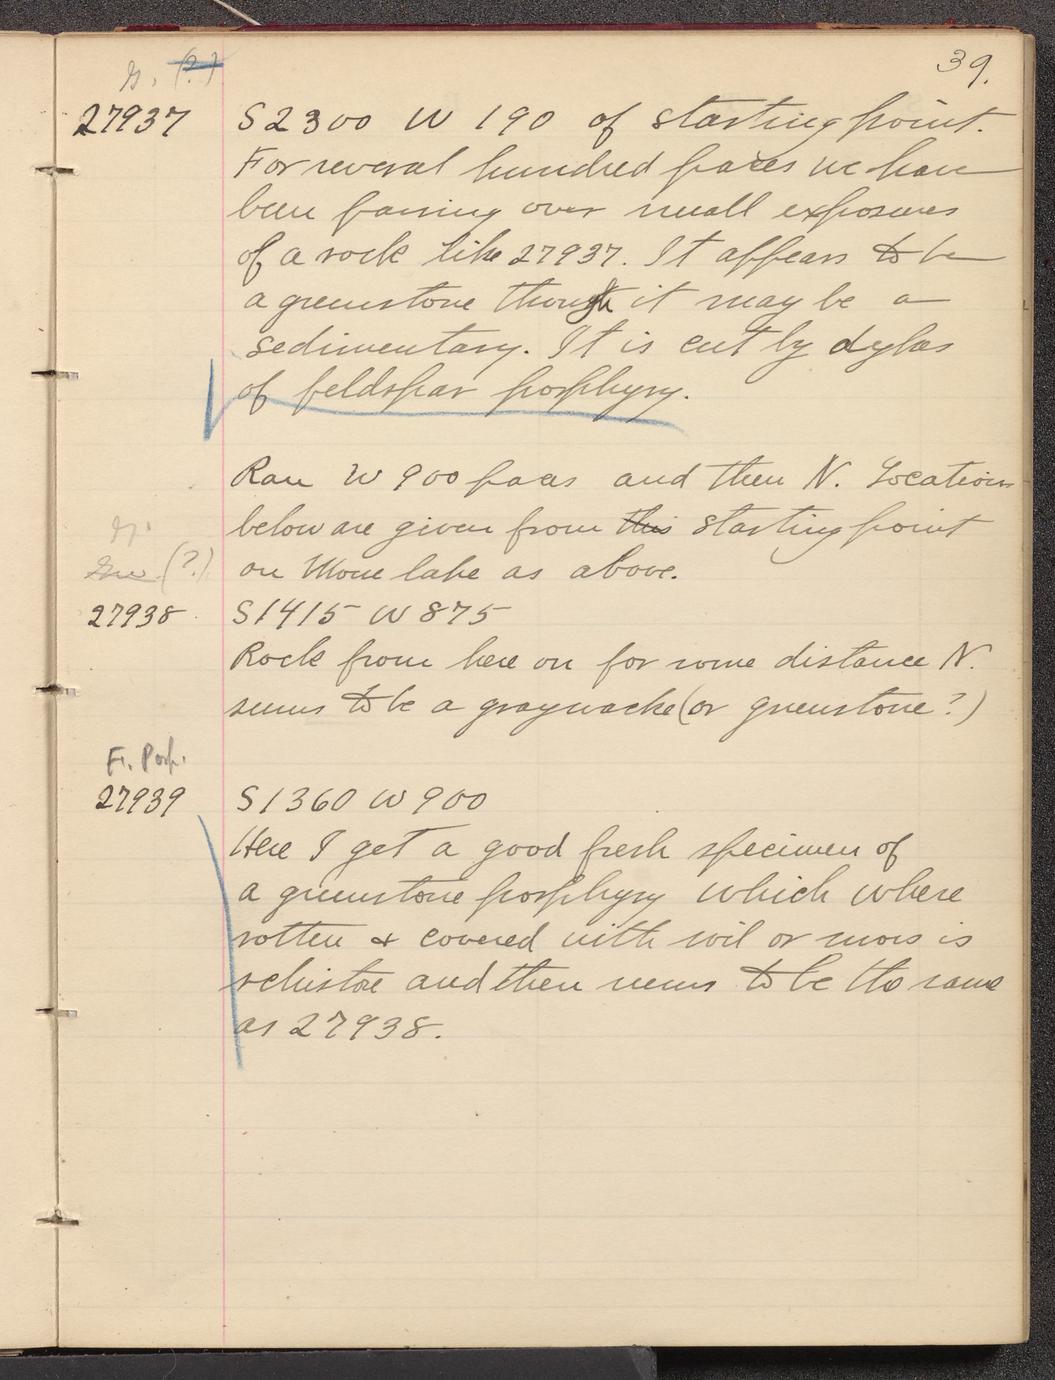 39.
G. (?)
27937 S2300 W 190 of starting point.
For several hundred paces we have
been passing over small exposures
of a rock like 27937. It appears to be
a greenstone though it may be a
sedimentary. It is cut by dykes
of feldspar porphyry.
Ran W 900 paces and then N. Locations
below are given from this starting point
G.
(?) on Mone lake as above.
27938 S1415 W875
Rock from here on for some distance N.
seems to be a graywacke (or greenstone?)
F. Porp.
27939 S1360 W900
Here I get a good fresh specimen of
a greenstone porphyry which where
rotten & covered with soil or moss is
schistose and then seems to be the same
as 27938.